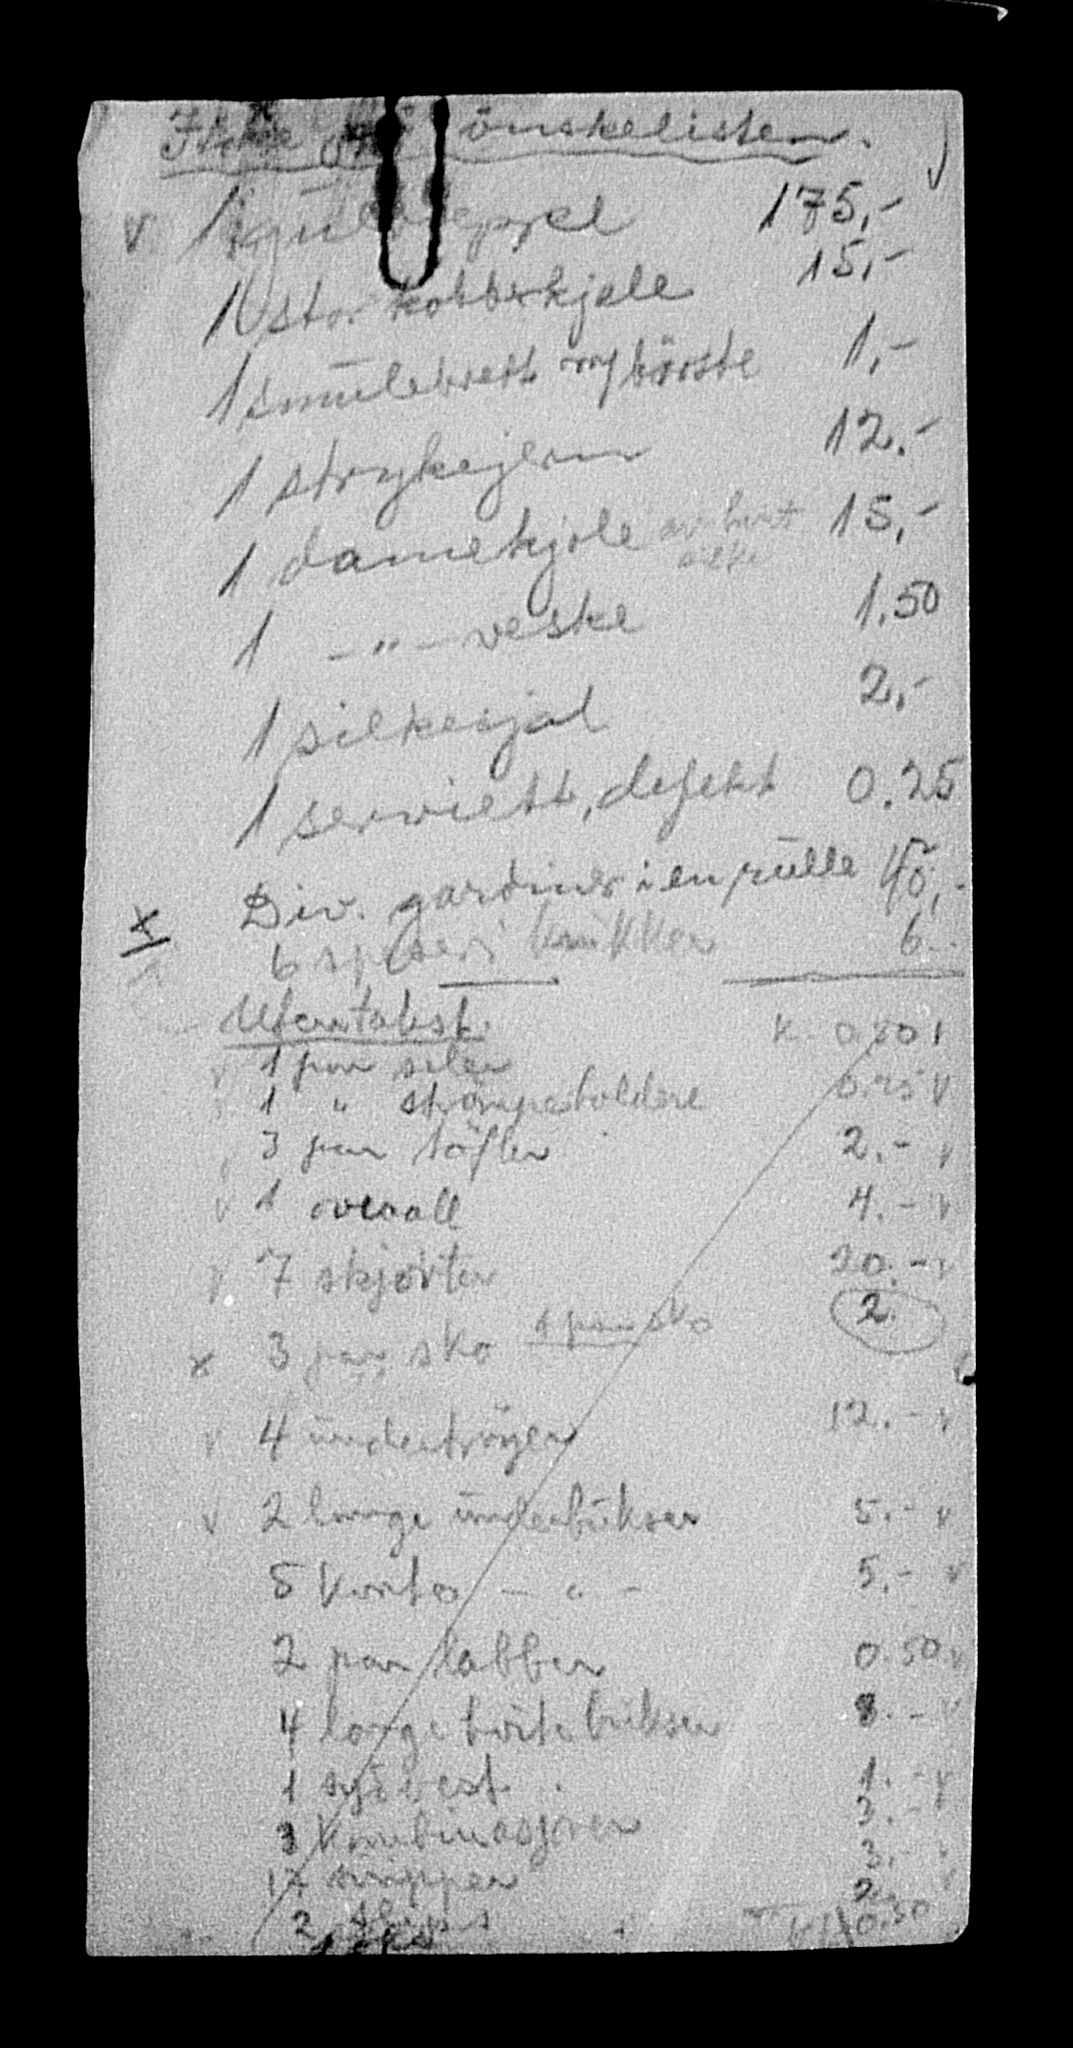 Ikke på önskelisten.
v 1 gulvteppe 175,-
1 stor kobberkjele 15,-
1 smulebrett m/börste 1,-
1 strykejern 12.-
1 damekjole av hvit silke 15,-
1 -"- veske 1.50
1 silkesjal 2,-
1 serviett, defekt 0.25
Div. gardiner i en rulle
x 6 krukker 6.-
Utentalist.
v 1 par seler k. 0.50
1 " strömpeholdere 0.25 v
3 par töfler 2.- v
v 1 overall 4.- v
v 7 skjorter 20.- v
x 3 par sko 1 par sko 2.
v 4 undertröyer 12.- v
v 2 lange underbukser 5.- v
5 korte -"- 5.- v
2 par labber 0.50 v
4 lange hvite bukser 8.- v
1 vest 1.- v
3 kombinasjoner 3.-
17 snipper 3.-
2 slips 2.